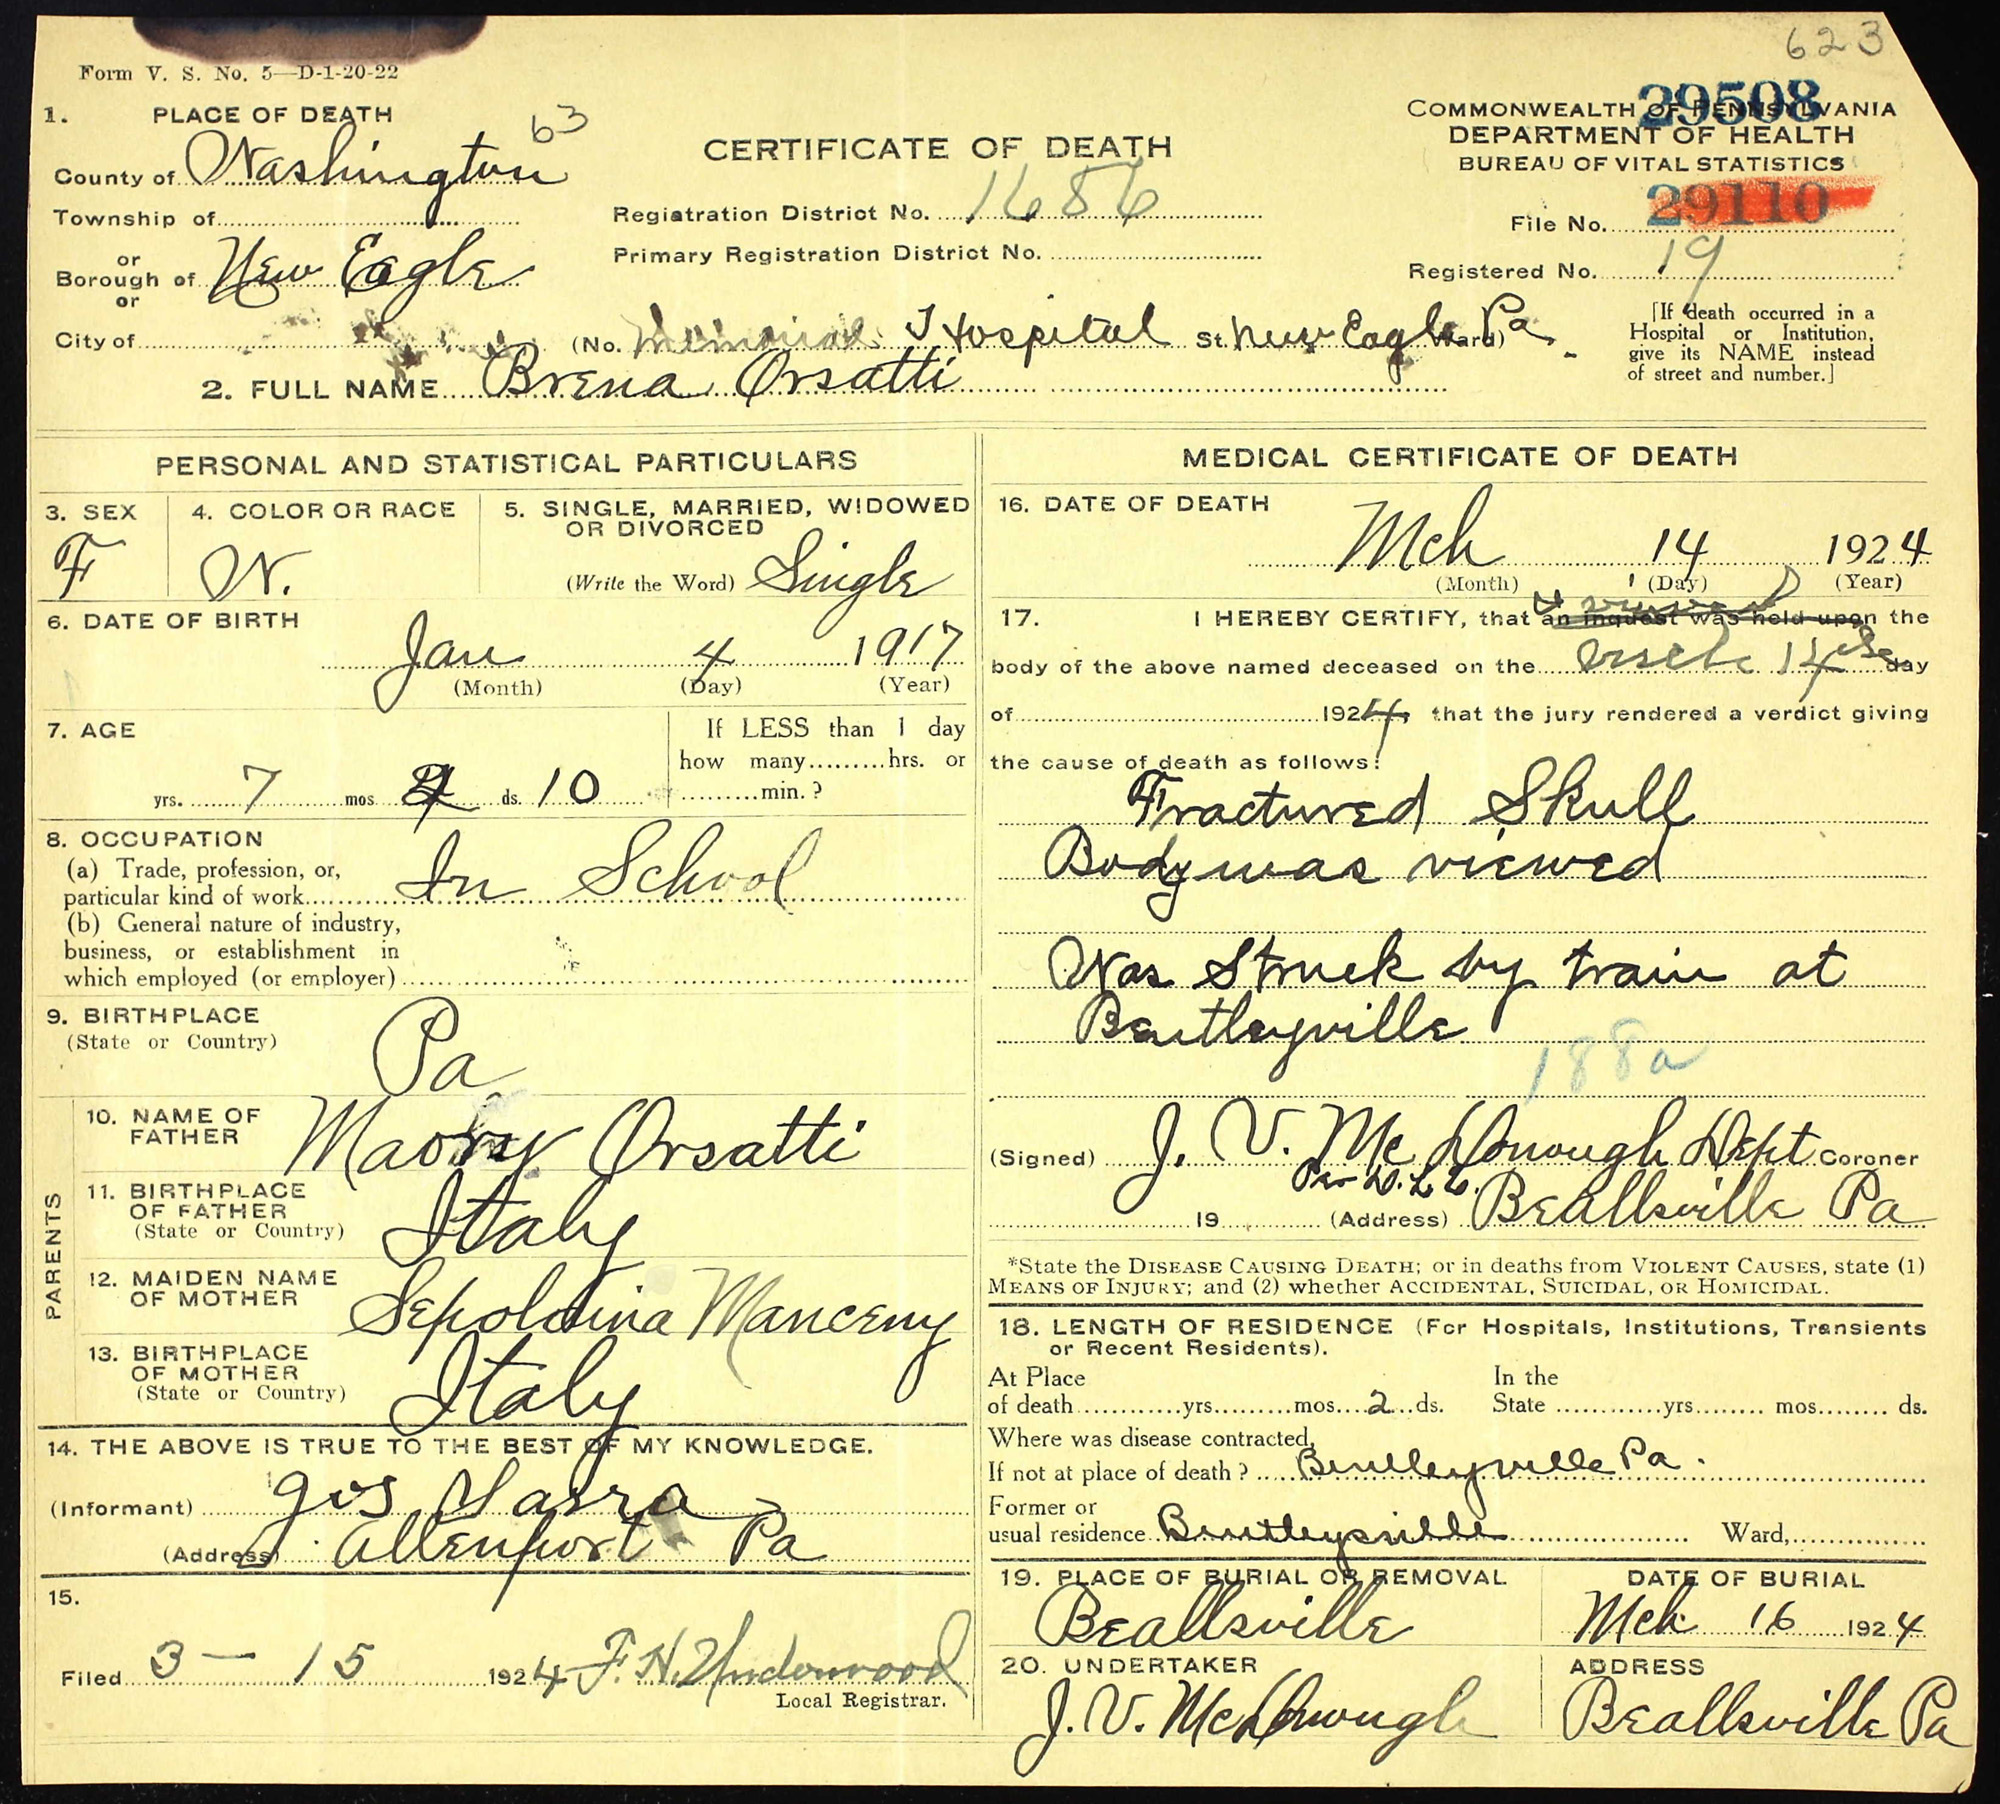 623
Form V. S. No. 5—D-1-20-22
29508
1. PLACE OF DEATH 63
COMMONWEALTH OF PENNSYLVANIA
DEPARTMENT OF HEALTH
BUREAU OF VITAL STATISTICS
CERTIFICATE OF DEATH
County of Washington
Township of
Registration District No. 1686
29110
File No.
or
Borough of New Eagle
or
Primary Registration District No.
Registered No. 19
City of (No. Memorial Hospital St. New Eagle Pa. Ward)
[If death occurred in a
Hospital or Institution,
give its NAME instead
of street and number.]
2. FULL NAME Brena Orsatti
PERSONAL AND STATISTICAL PARTICULARS
3. SEX
F
4. COLOR OR RACE
W.
5. SINGLE, MARRIED, WIDOWED
OR DIVORCED
(Write the Word) Single
6. DATE OF BIRTH
Jan 4 1917
(Month) (Day) (Year)
7. AGE
yrs. 7 mos 2 ds. 10
If LESS than 1 day
how many hrs. or
min. ?
8. OCCUPATION
(a) Trade, profession, or,
particular kind of work In School
(b) General nature of industry,
business, or establishment in
which employed (or employer)
9. BIRTHPLACE
(State or Country)
Pa
PARENTS
10. NAME OF
FATHER
Orsatti
11. BIRTHPLACE
OF FATHER
(State or Country)
Italy
12. MAIDEN NAME
OF MOTHER
Sepoldina Manceny
13. BIRTHPLACE
OF MOTHER
(State or Country)
Italy
14. THE ABOVE IS TRUE TO THE BEST OF MY KNOWLEDGE.
(Informant) Gus
(Address) Allenport Pa
15.
Filed 3 — 15 1924 F. H. Underwood
Local Registrar.
MEDICAL CERTIFICATE OF DEATH
16. DATE OF DEATH
Mch 14 1924
(Month) (Day) (Year)
17. I HEREBY CERTIFY, that an inquest was held upon the
body of the above named deceased on the 14 day
of 1924, that the jury rendered a verdict giving
the cause of death as follows:
Fractured Skull
Body was viewed
Was Struck by train at
Bentleyville
188a
(Signed) J. V. McDonough Dept Coroner
19 (Address) Beallsville Pa
*State the DISEASE CAUSING DEATH; or in deaths from VIOLENT CAUSES, state (1)
MEANS OF INJURY; and (2) whether ACCIDENTAL, SUICIDAL, OR HOMICIDAL.
18. LENGTH OF RESIDENCE (For Hospitals, Institutions, Transients
or Recent Residents).
At Place
of death yrs. mos. 2 ds.
In the
State yrs. mos. ds.
Where was disease contracted,
If not at place of death ? Bentleyville Pa.
Former or
usual residence Bentleyville Ward,
19. PLACE OF BURIAL OR REMOVAL
Beallsville
DATE OF BURIAL
Mch 16 1924
20. UNDERTAKER
J. V. McDonough
ADDRESS
Beallsville Pa